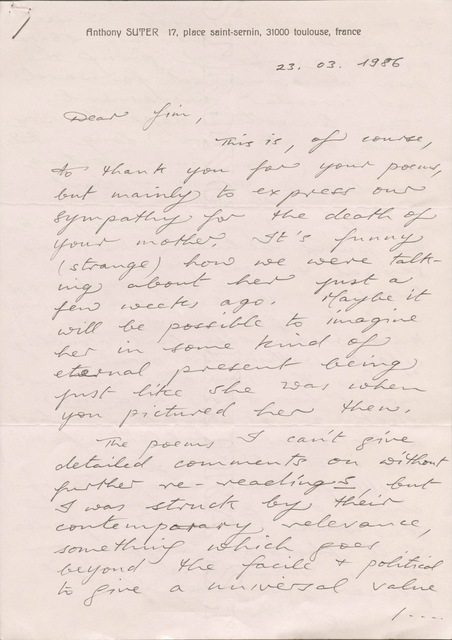 Anthony SUTER 17, place saint-sernin, 31000 toulouse, france
23. 03. 1986
Dear Jim,
This is, of course,
to thank you for your poems,
but mainly to express our
sympathy for the death of
your mother. It's funny
(strange) how we were talk-
ing about her just a
few weeks ago. Maybe it
will be possible to imagine
her in some kind of
eternal present being
just like she was when
you pictured her then.
The poems I can't give
detailed comments on without
further re-readings, but
I was struck by their
contemporary relevance,
something which goes
beyond the facile + political
to give a universal value
/....